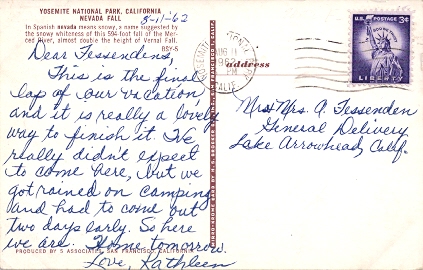 YOSEMITE NATIONAL PARK, CALIFORNIA
NEVADA FALL
In Spanish nevada means snow, a name suggested by
the snowy whiteness of this 594-foot fall of the Mer-
ced River, almost double the height of Vernal Fall.
BSY-5
8-11-62
Dear Fessendens,
This is the final
lap of our vacation
and it is really a lovely
way to finish it. I've
really didn't expect
to come here, but we
got rained on camping
and had to come out
two days early. So here
we are. Home tomorrow.
Love, Kathleen
PRODUCED BY S ASSOCIATES, SAN FRANCISCO, CALIFORNIA
address
YOSEMITE
1962
PM
CALIF.
U.S. POSTAGE 3¢
LIBERTY
Mr & Mrs. A. Fessenden
General Delivery
Lake Arrowhead, Calif.